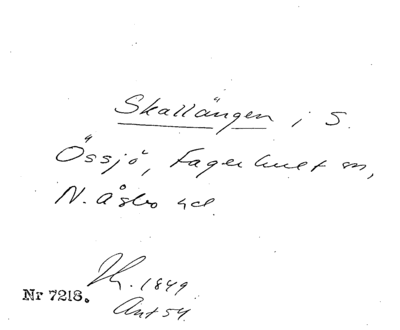 Skallängen i S.
Össjö, Fagerhult sn,
N. Åsbo hd.
Jk. 1849
Nr 7218. Ant 54